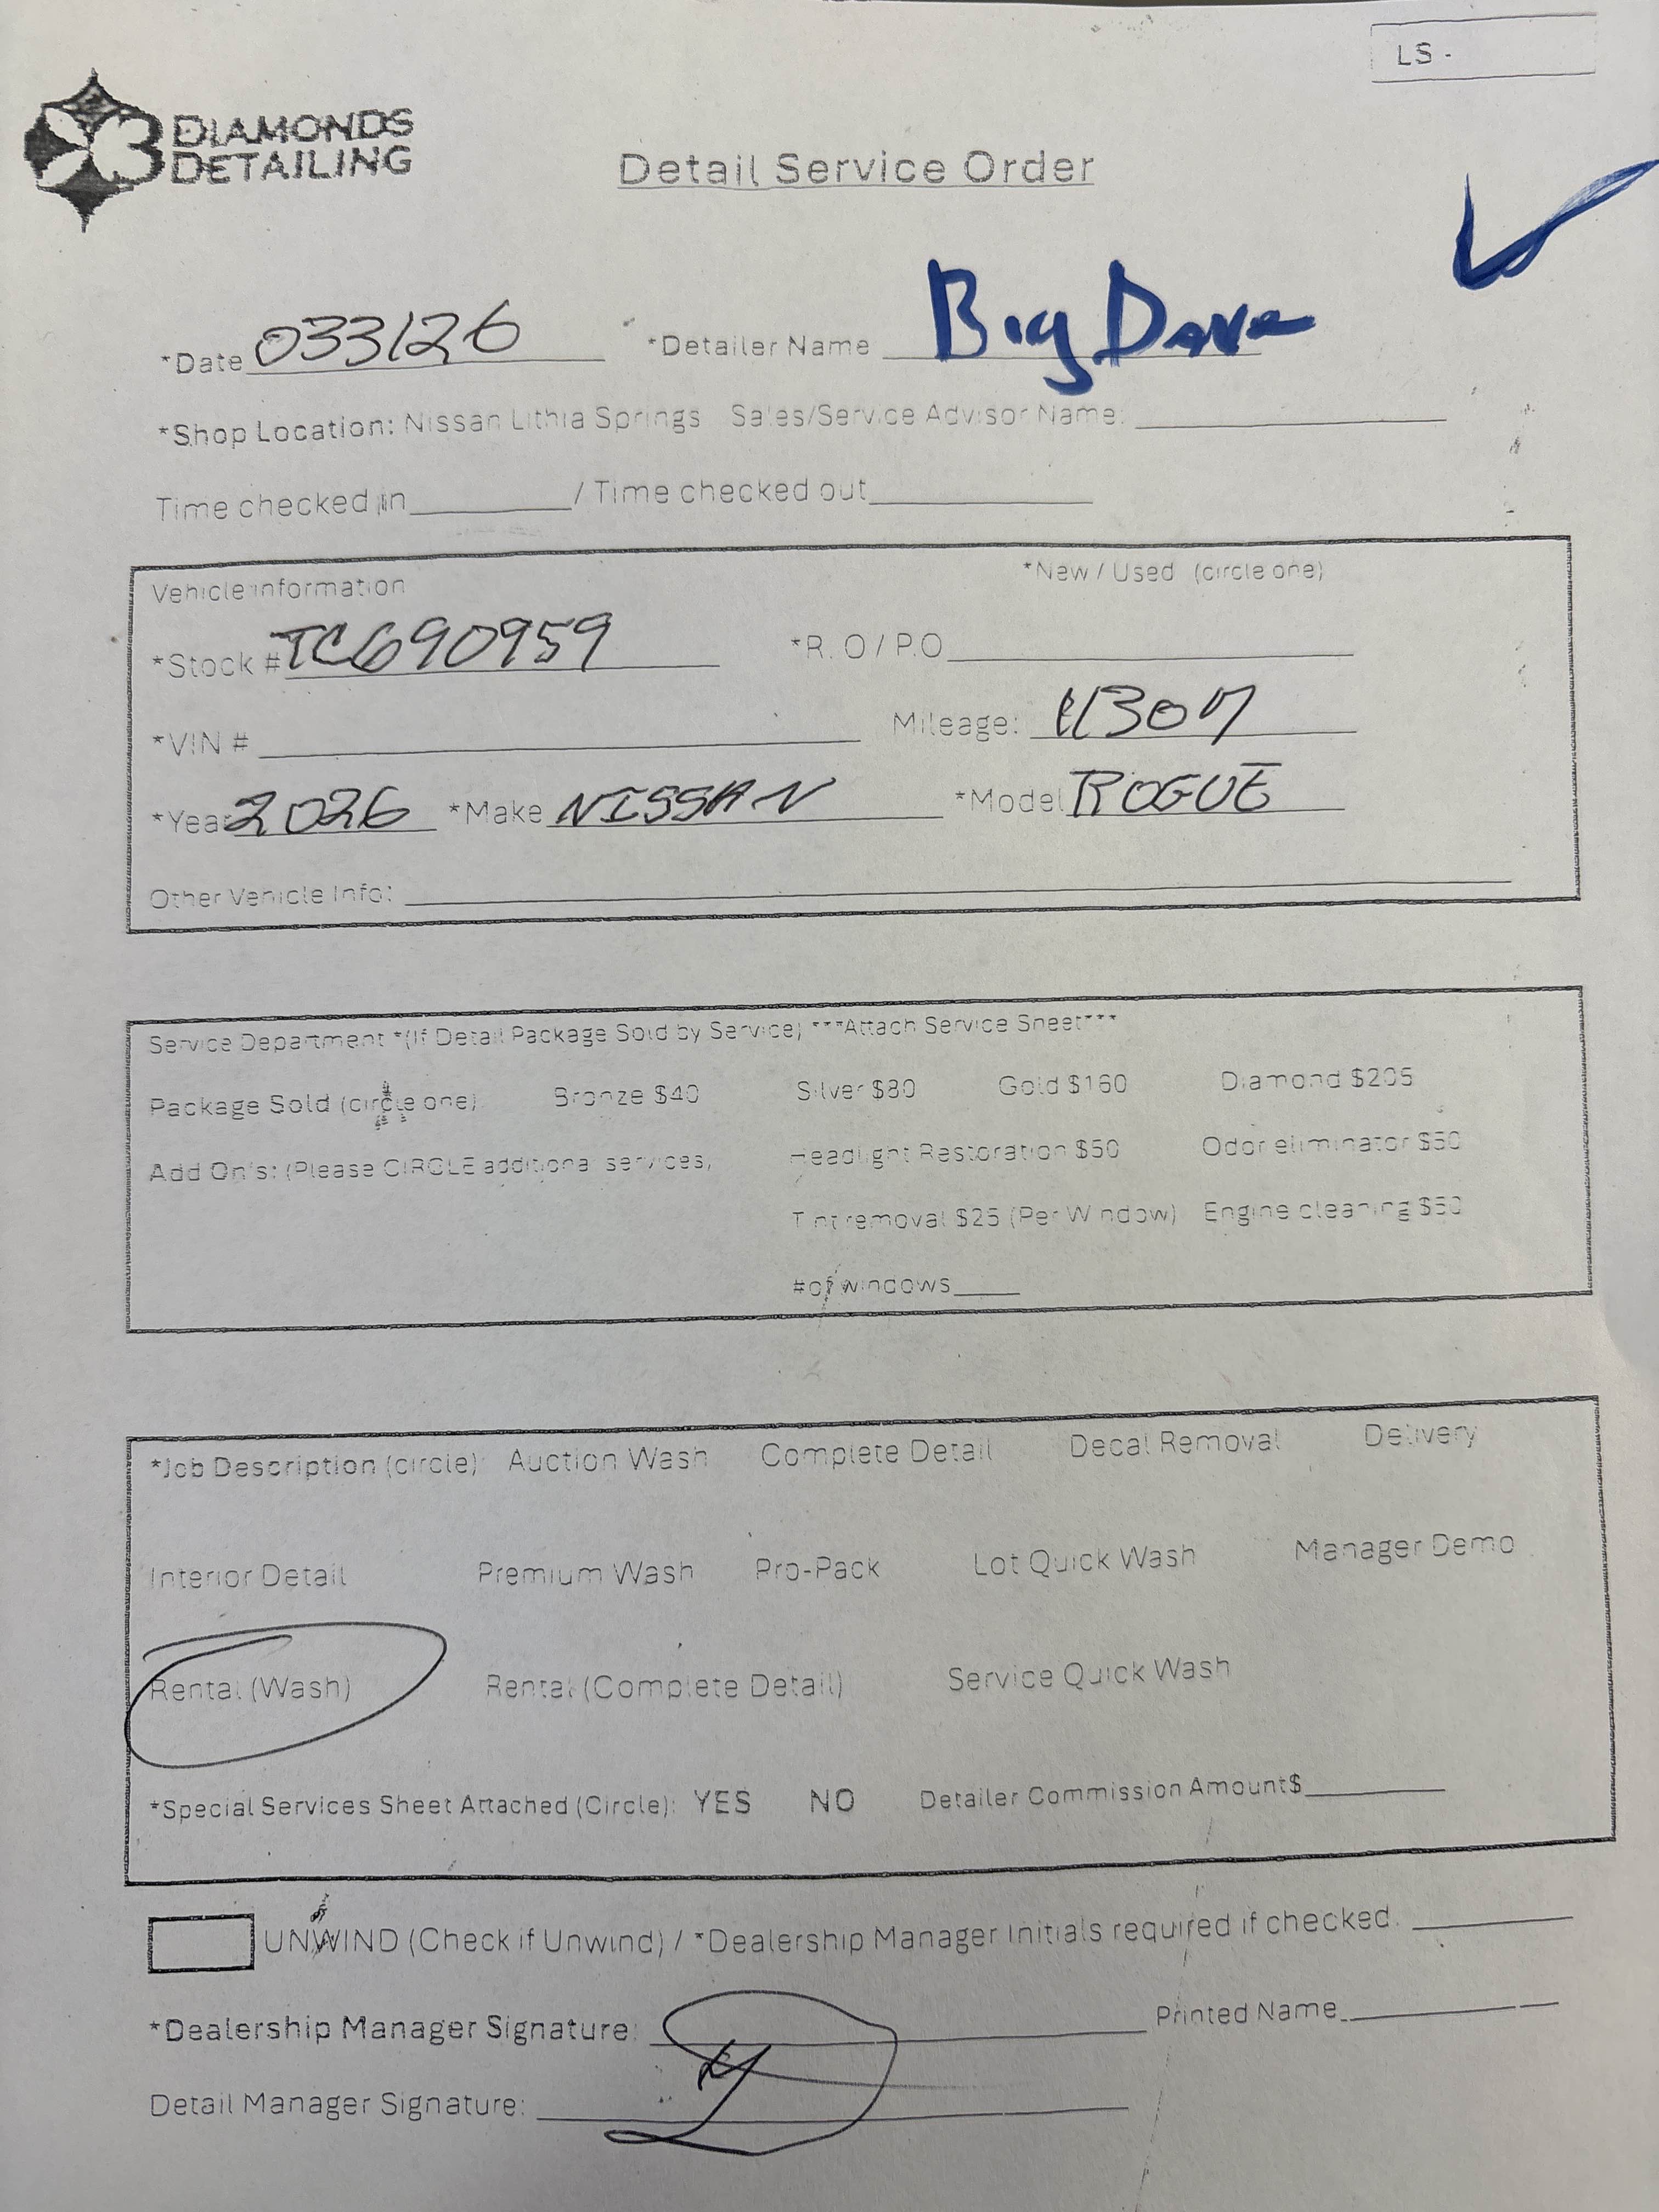 LS -
DIAMONDS
DETAILING
Detail Service Order
*Date 033126 *Detailer Name Big Dave
*Shop Location: Nissan Lithia Springs Sales/Service Advisor Name:
Time checked in / Time checked out
Vehicle information *New / Used (circle one)
*Stock # TC690959 *R.O / P.O
*VIN # Mileage: 1307
*Year 2026 *Make NISSAN *Model ROGUE
Other Vehicle Info:
Service Department *(If Detail Package Sold by Service) ***Attach Service Sheet***
Package Sold (circle one) Bronze $40 Silver $80 Gold $160 Diamond $205
Add On's: (Please CIRCLE additional services) Headlight Restoration $50 Odor eliminator $50
Tint removal $25 (Per Window) Engine cleaning $50
# of windows
*Job Description (circle): Auction Wash Complete Detail Decal Removal Delivery
Interior Detail Premium Wash Pro-Pack Lot Quick Wash Manager Demo
Rental (Wash) Rental (Complete Detail) Service Quick Wash
*Special Services Sheet Attached (Circle): YES NO Detailer Commission Amount$
UNWIND (Check if Unwind) / *Dealership Manager Initials required if checked.
*Dealership Manager Signature: Printed Name
Detail Manager Signature: